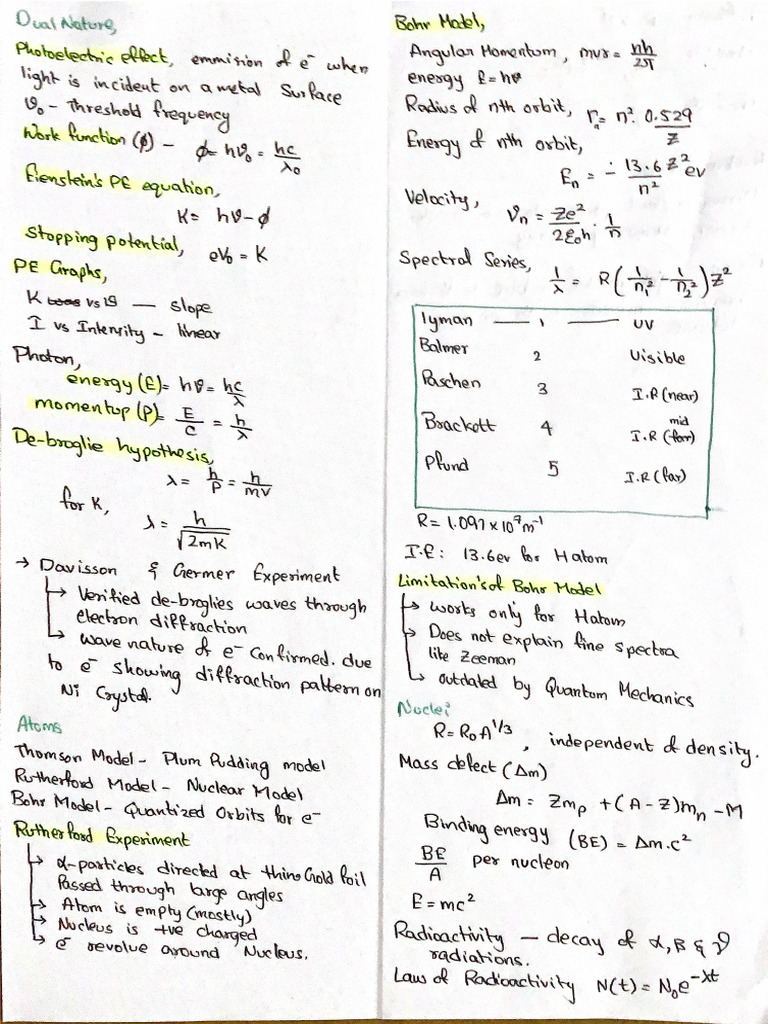 Dual Nature,
Photoelectric effect, emmision of e⁻ when
light is incident on a metal surface
ϑ₀ - Threshold frequency
Work function (ϕ) - ϕ = hϑ₀ = hc/λ₀
Eienstein's PE equation,
K = hϑ - ϕ
Stopping potential, eV₀ = K
PE Graphs,
K vs ϑ — slope
I vs Intensity - linear
Photon,
energy (E) = hϑ = hc/λ
momentup (P) = E/c = h/λ
De-broglie hypothesis,
λ = h/P = h/mv
for K,
λ = h/√2mK
→ Davisson & Germer Experiment
↳ Verified de-broglies waves through
electron diffraction
↳ wave nature of e⁻ confirmed. due
to e⁻ showing diffraction pattern on
Ni Crystal.
Atoms
Thomson Model - Plum Pudding model
Rutherford Model - Nuclear Model
Bohr Model - Quantized Orbits for e⁻
Rutherford Experiment
↳ α-particles directed at thine Gold foil
Passed through large angles
↳ Atom is empty (mostly)
↳ Nucleus is +ve charged
↳ e⁻ revolve around Nucleus.
Bohr Model,
Angular Momentum, mvr = nh/2π
energy E = hϑ
Radius of nth orbit, rₙ = n². 0.529/Z
Energy of nth orbit,
Eₙ = - 13.6 Z²/n² ev
Velocity,
ϑₙ = Ze²/2ε₀h . 1/n
Spectral Series, 1/λ = R(1/n₁² - 1/n₂²)Z²
lyman — 1 — UV
Balmer 2 Visible
Paschen 3 I.R (near)
Brackett 4 I.R (mid)
Pfund 5 I.R (far)
R = 1.097 × 10⁷ m⁻¹
I.E: 13.6ev for H atom
Limitation's of Bohr Model
↳ works only for H atom
↳ Does not explain fine spectra
like Zeeman
↳ outdated by Quantom Mechanics
Nuclei
R = R₀A^1/3, independent of density.
Mass defect (Δm)
Δm = Zmₚ + (A - Z)mₙ - M
Binding energy (BE) = Δm.c²
BE/A per nucleon
E = mc²
Radioactivity — decay of α, β & ϑ
radiations.
Law of Radioactivity N(t) = N₀e^-λt